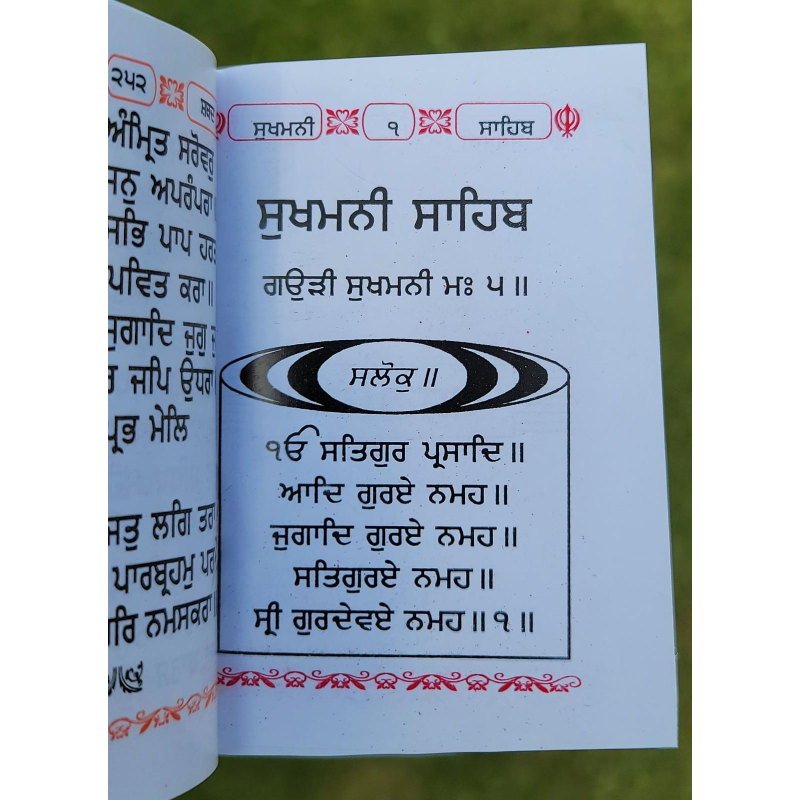 ੨੫੨
ਅੰਮ੍ਰਿਤ ਸਰੋਵਰੁ
ਅਪਰੰਪਰਾ
ਪਾਪ
ਪਵਿਤ ਕਰਾ॥
ਜੁਗਾਦਿ ਜੁਗੁ
ਜਪਿ ਉਧਰਾ
ਪ੍ਰਭ ਮੇਲਿ
ਲਗਿ ਤਰਾ
ਪਾਰਬ੍ਰਹਮੁ
ਨਮਸਕਰਾ॥
ਸੁਖਮਨੀ ੧ ਸਾਹਿਬ
ਸੁਖਮਨੀ ਸਾਹਿਬ
ਗਉੜੀ ਸੁਖਮਨੀ ਮਃ ੫॥
ਸਲੋਕੁ॥
ੴ ਸਤਿਗੁਰ ਪ੍ਰਸਾਦਿ॥
ਆਦਿ ਗੁਰਏ ਨਮਹ॥
ਜੁਗਾਦਿ ਗੁਰਏ ਨਮਹ॥
ਸਤਿਗੁਰਏ ਨਮਹ॥
ਸ੍ਰੀ ਗੁਰਦੇਵਏ ਨਮਹ॥੧॥